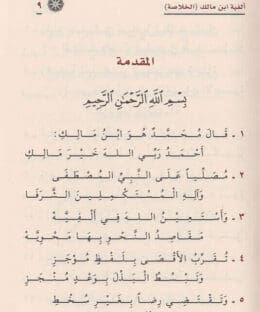 ألفية ابن مالك (الخلاصة) ٩
المقدمة
بِسْمِ اللَّهِ الرَّحْمَٰنِ الرَّحِيمِ
١ - قَالَ مُحَمَّدٌ هُوَ ابْنُ مَالِكِ:
أَحْمَدُ رَبِّي اللهَ خَيْرَ مَالِكِ
٢ - مُصَلِّياً عَلَى النَّبِيِّ المُصْطَفَى
وَآلِهِ المُسْتَكْمِلِينَ الشَّرَفَا
٣ - وَأَسْتَعِينُ اللهَ فِي أَلْفِيَّهْ
مَقَاصِدُ النَّحْوِ بِهَا مَحْوِيَّهْ
٤ - تُقَرِّبُ الأَقْصَى بِلَفْظٍ مُوجَزِ
وَتَبْسُطُ البَذْلَ بِوَعْدٍ مُنْجَزِ
٥ - وَتَقْتَضِي رِضاً بِغَيْرِ سُخْطِ